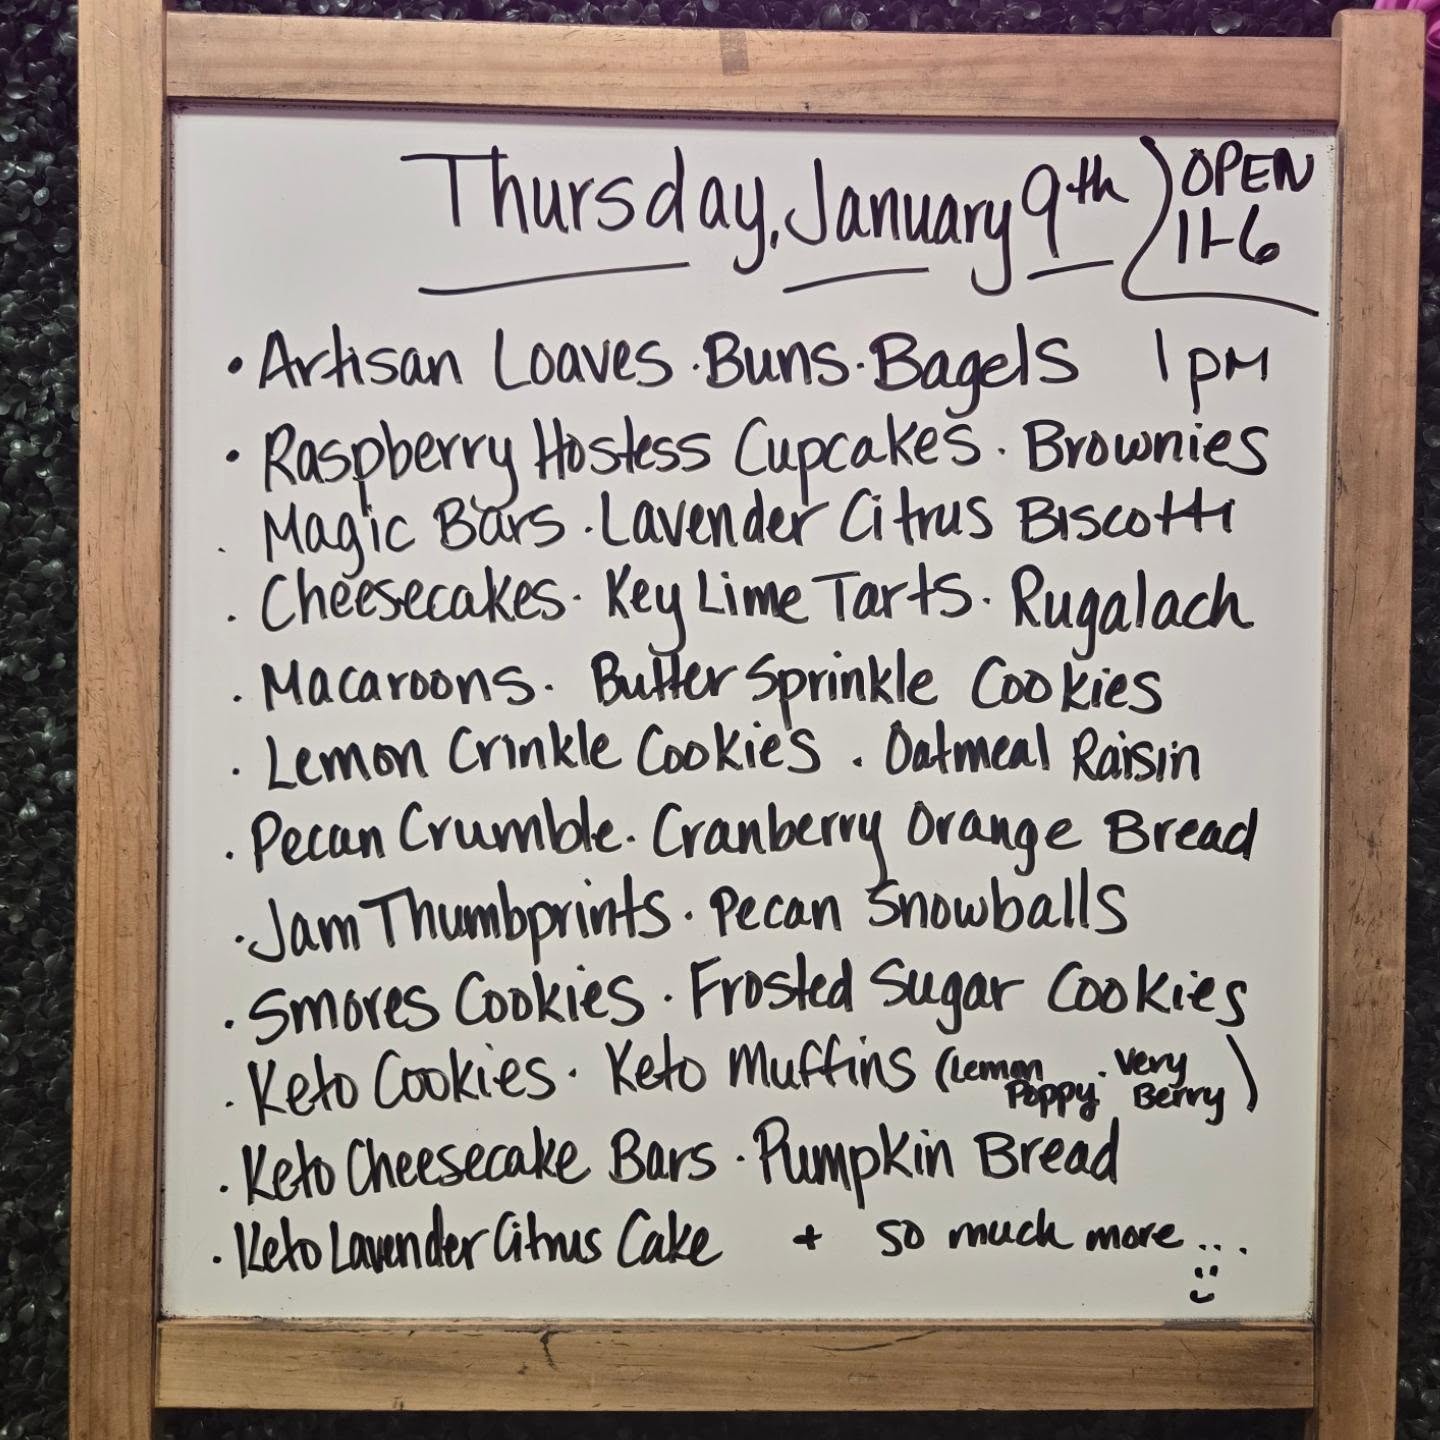 Thursday, January 9th
OPEN
11-6
• Artisan Loaves · Buns · Bagels 1pm
• Raspberry Hostess Cupcakes · Brownies
· Magic Bars · Lavender Citrus Biscotti
· Cheesecakes · Key Lime Tarts · Rugalach
· Macaroons · Butter Sprinkle Cookies
· Lemon Crinkle Cookies · Oatmeal Raisin
· Pecan Crumble · Cranberry Orange Bread
· Jam Thumbprints · Pecan Snowballs
· Smores Cookies · Frosted Sugar Cookies
· Keto Cookies · Keto Muffins (Lemon Poppy · Very Berry)
· Keto Cheesecake Bars · Pumpkin Bread
· Keto Lavender Citrus Cake + so much more...